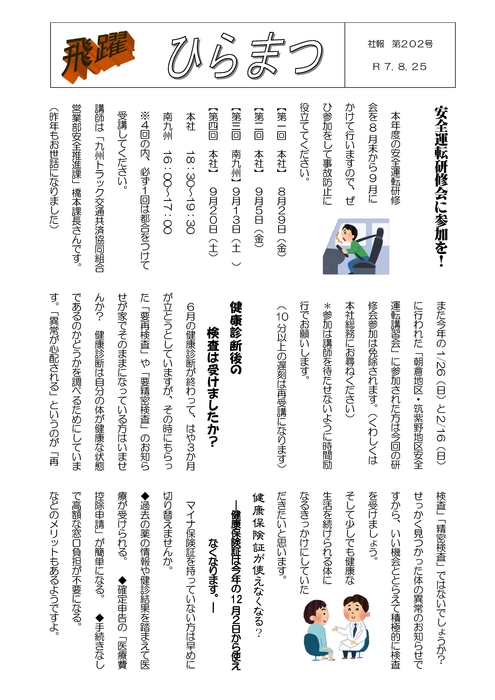 飛躍
ひらまつ
社報 第202号
R7,8,25
安全運転研修会に参加を！
本年度の安全運転研修
会を8月末から9月に
かけて行いますので、ぜ
ひ参加をして事故防止に
役立ててください。
【第一回 本社】 8月29日（金）
【第二回 本社】 9月5日（金）
【第三回 南九州】 9月13日（土 ）
【第四回 本社】 9月20日（土）
本社 18：30～19：30
南九州 16：00～17：00
※4回の内、必ず1回は都合をつけて
受講してください。
講師は「九州トラック交通共済協同組合
営業部安全推進課」橋本課長さんです。
（昨年もお世話になりました）
また今年の1/26（日）と2/16（日）
に行われた「朝倉地区・筑紫野地区安全
運転講習会」に参加された方は今回の研
修会参加は免除されます。（くわしくは
本社総務にお尋ねください）
＊参加は講師を待たせないように時間励
行でお願いします。
（10分以上の遅刻は再受講になります）
健康診断後の
検査は受けましたか？
6月の健康診断が終わって、はや3か月
が立とうとしていますが、その時にもらっ
た「要再検査」や「要精密検査」のお知ら
せが家でそのままになっている方はいませ
んか？ 健康診断は自分の体が健康な状態
であるのかどうかを調べるためにしていま
す。「異常が心配される」というのが「再
検査」「精密検査」ではないでしょうか？
せっかく見つかった体の異常のお知らせで
すから、いい機会ととらえて積極的に検査
を受けましょう。
そして少しでも健康な
生活を続けられる体に
なるきっかけにしていた
だきたいと思います。
健康保険証が使えなくなる？
―健康保険証は今年の12月2日から使え
なくなります。―
マイナ保険証を持っていない方は早めに
切り替えませんか。
◆過去の薬の情報や健診結果を踏まえて医
療が受けられる。 ◆確定申告の「医療費
控除申請」が簡単になる。 ◆手続きなし
で高額な窓口負担が不要になる。
などのメリットもあるようですよ。